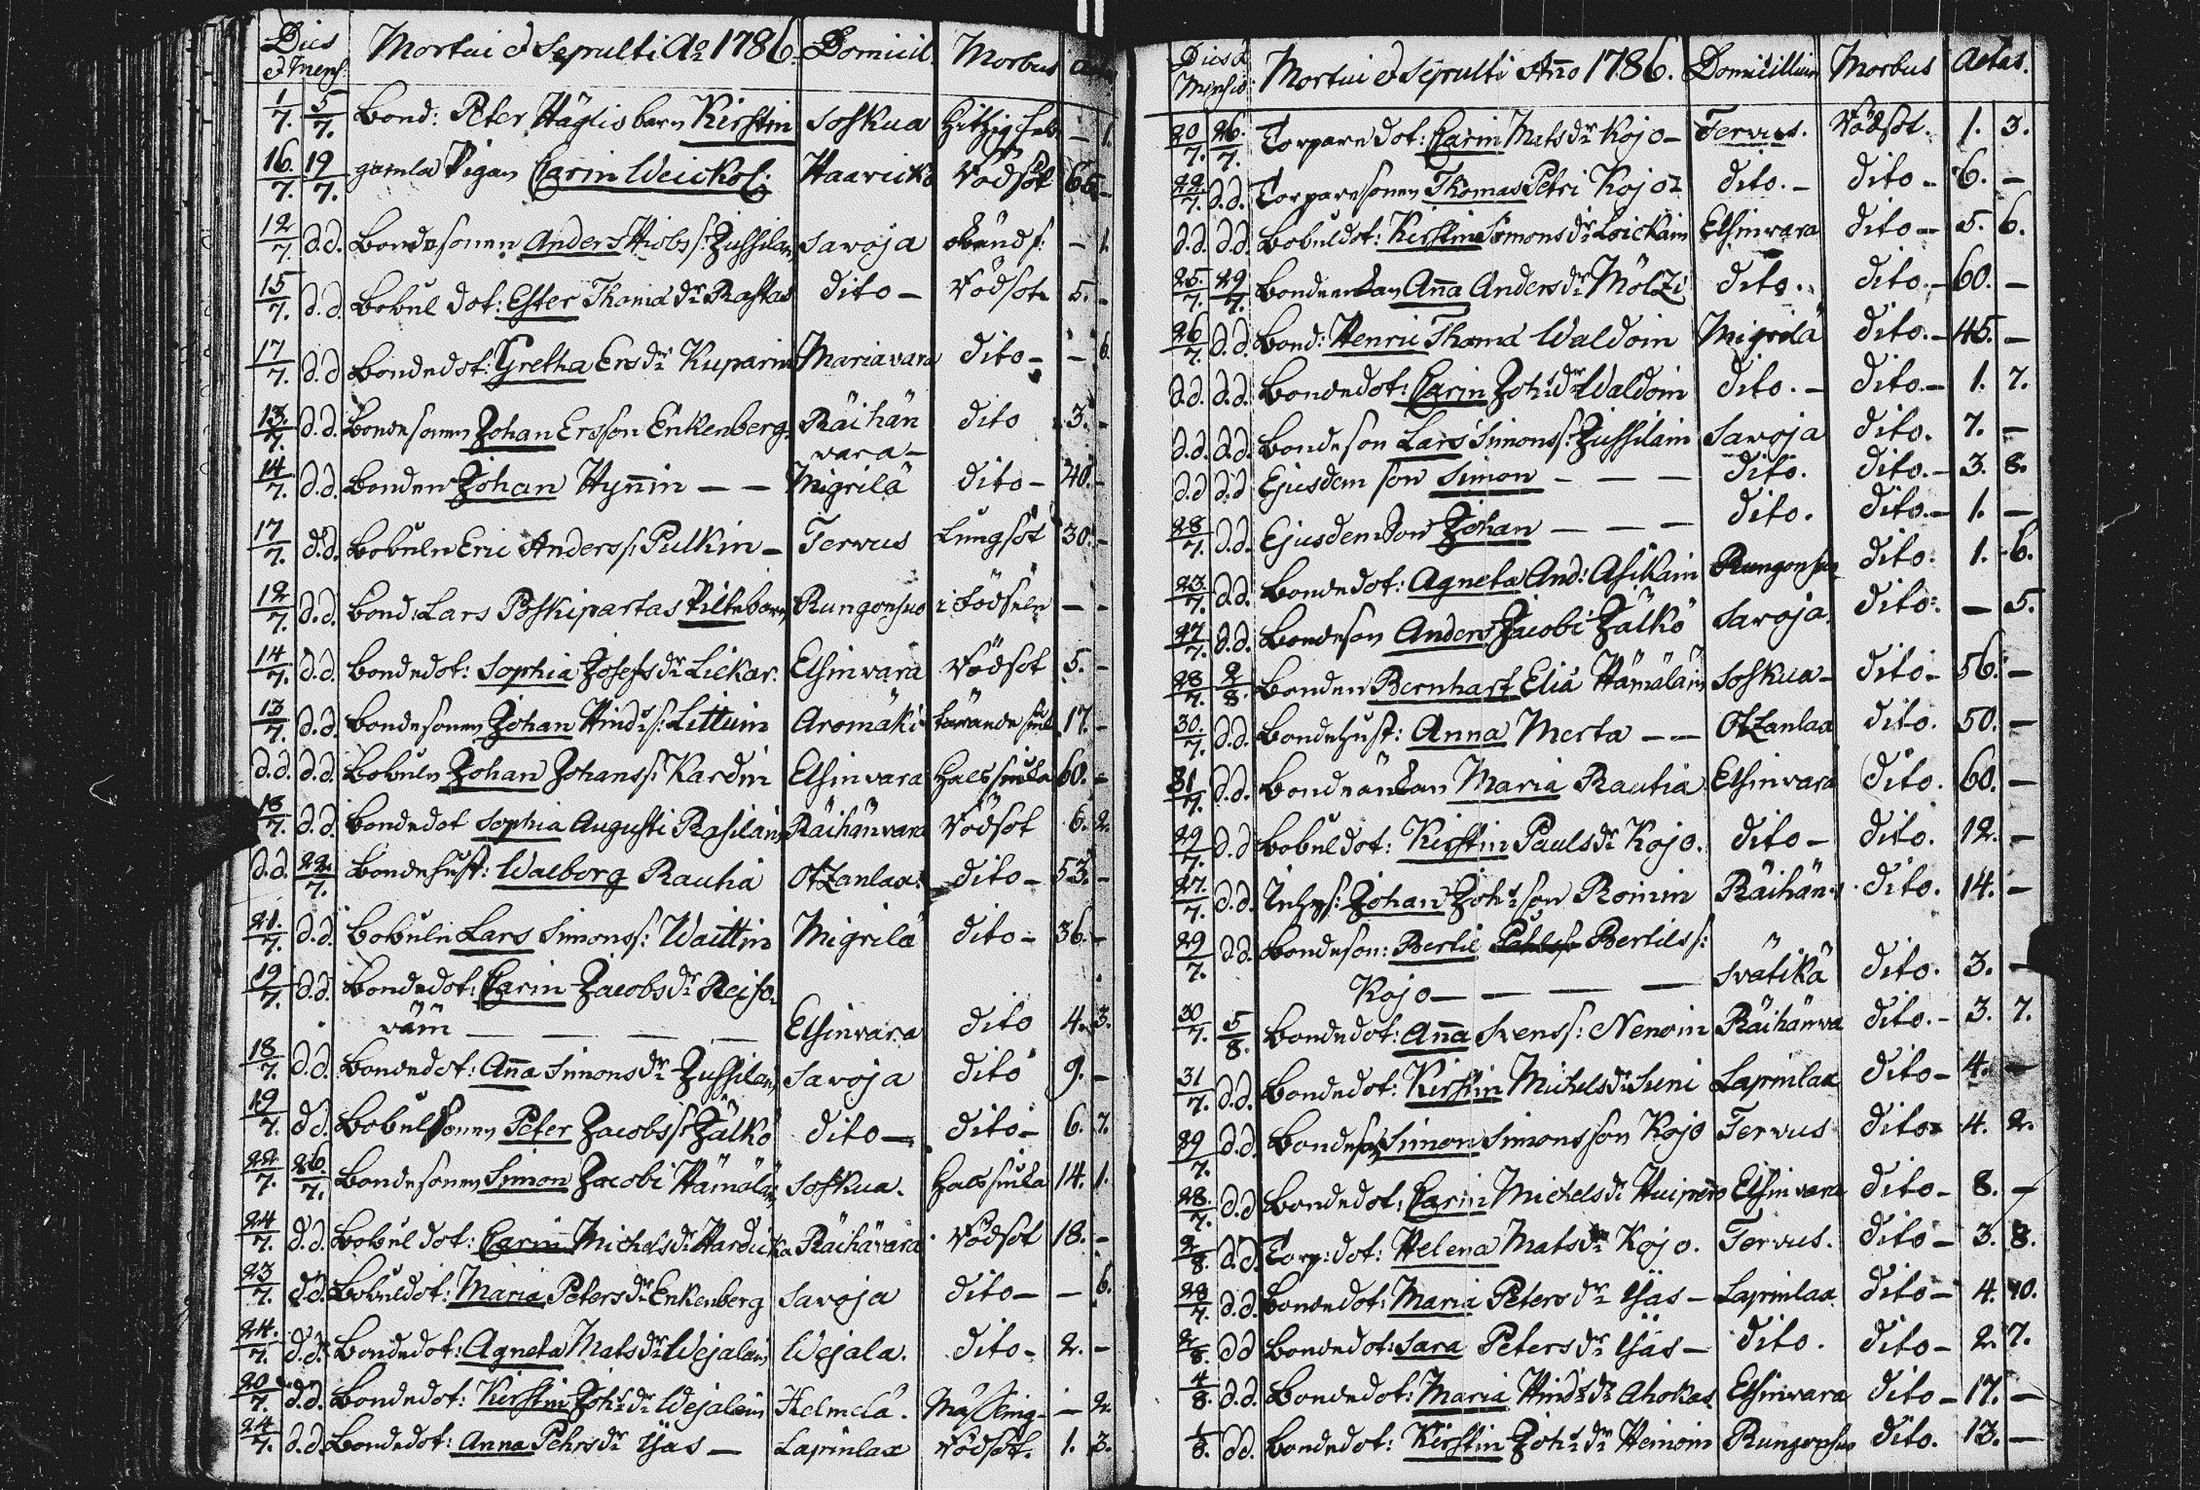 Dies Mortui & Sepulti Ao 1786. Domicil Morbus
& Mens.
1/7. 5/7. Bond: Peter Häglis barn Kirstin Soskua Hitzig feb — 1.
16./7. 19/7. gamla Pigan Carin Weickol: Haaricko Vödsot 65. –
12/7 d.d. Bondesonen Anders Hiobs s: Jussilain Savoja — 1
15/7. d.d. Bobul dot: Ester Thomæ dr Rastas dito — Vödsot 5. –
17/7. d.d Bondedot: Gretha Ersdr Kuparin Mariavara dito – – 6.
13./7. d.d. Bondesonen Johan Ersson Enkenberg Räihän dito 3. –
vara –
14/7. d.d. Bonden Johan Hynnin — — Migrilä dito – 40. –
17/7. d.d. Bobuln Eric Anders s: Pulkin – Tervus Lungsot 30. –
12/7. d.d. Bond: Lars Poskipartas Piltebarn Rungonsuo i födseln — –
14/7. d.d. Bondedot: Sophia Josefs dr Liekar. Elsinvara Vödsot 5. –
13/7. d.d. Bondesonen Johan Hindr s: Littuin Aromäki tärande siuk 17. –
d.d. d.d. Bobuln Johan Johanss: Kardin Elsinvara Halssiuka 60. –
18/7. d.d. Bondedot Sophia Augusti Rasilain Räihänvara Vödsot 6. 2.
d.d. 22./7. Bondehust: Walborg Rautia Otzanlax. dito – 53. –
21./7. d.d. Bobuln Lars Simons s: Waittin Migrilä dito – 36. –
19/7. d.d. Bondedot: Carin Jacobs dr Reiso-
väin — — — — Elsinvara dito 4. 3.
18/7. d.d. Bondedot: Anna Simons dr Jussilain Savoja dito 9. –
19/7. d.d. Bobulsonen Peter Jacobs s: Jälkö dito — dito – 6. 7.
22/7. 26./7. Bondesonen Simon Jacobi Hämäläin Soskua. Halssiuka 14. 1.
24/7. d.d. Bobul dot: Carin Michels dr Hardicka Räihävara Vödsot 18. –
23/7. d.d. Bobuldot: Maria Peters dr Enkenberg Savoja dito — — 6.
24./7. d.d. Bondedot: Agneta Mats dr Wejalain Wejala. dito – 2. –
20/7. d.d. Bondedot: Kirstin Joh: dr Wejalain Helmelä. Mässling – — 2.
24/7. d.d. Bondedot: Anna Pehrs dr Yjas — Lapinlax Vödsot. 1. 3.
Dies & Mortui & Sepulti Anno 1786. Domicillium Morbus Aetas.
Mensis
20/7. 26./7. Torparedot: Carin Mats dr Kojo – Tervus. Vödsot. 1. 3.
22/7. d.d. Torparesonen Thomas Petri Kojo dito. – dito – 6. –
d.d. d.d. Bobuldot: Kirstin Simons dr Loickain Elsinvara dito — 5. 6.
25./7. 29/7. Bondeenkan Anna Anders dr Mölzi dito. dito. – 60. –
26/7. d.d. Bond: Henric Thomæ Waldoin Migrilä dito. – 45. –
d.d. d.d. Bondedot: Carin Joh: dr Waldoin dito. – dito. – 1. 7.
d.d. d.d. Bondeson Lars Simons s: Jussilain Savoja dito. 7. –
d.d d.d Ejusdem son Simon – — — dito. dito. – 3. 8.
28/7. d.d. Ejusdem son Johan — — — dito. dito. – 1. –
23/7. d.d. Bondedot: Agneta And: Asikain Rungonsuo dito. 1. 6.
27/7. d.d. Bondeson Anders Jacobi Jälkö Savoja. dito. — 5.
28/7. 2/8. Bonden Bernhart Eliæ Hämäläin Soskua – dito – 56. –
30./7. d.d. Bondehust: Anna Merta — — Otzanlax dito. 50. –
31/7. d.d. Bondeänkan Maria Rautia Elsinvara dito. 60. –
29/7. d.d Bobuldot: Kirstin Pauls dr Kojo. dito – dito. 12. –
27./7. d.d. Inhys: Johan Joh: son Romin Räihän: dito. 14. –
29/7. d.d. Bondeson: Bertil Bertils s:
Kojo — — — — Svätikä dito. 3. –
30/7. 5/8. Bondedot: Anna Svens s: Nenoin Räihänva dito. – 3. 7.
31/7. d.d. Bondedot: Kirstin Michels dr Suni Lapinlax dito – 4. –
29/7. d.d. Bondeson Simon Simonsson Kojo Tervus dito 4. 2.
28./7. d.d Bondedot: Carin Michels dr Huipero Elsinvara dito – 8. –
2/8. d.d. Torp: dot: Helena Mats dr Kojo. Tervus. dito — 3. 8.
28/7. d.d. Bondedot: Maria Peters dr Yjas – Lapinlax dito – 4. 10.
2/8. d.d Bondedot: Sara Peters dr Yjas — dito. dito – 2. 7.
4/8. d.d. Bondedot: Maria Hindr dr Ahokas Elsinvara dito – 17. –
1/8. d.d. Bondedot: Kirstin Joh: dr Heinoin Rungonsuo dito. 13. –